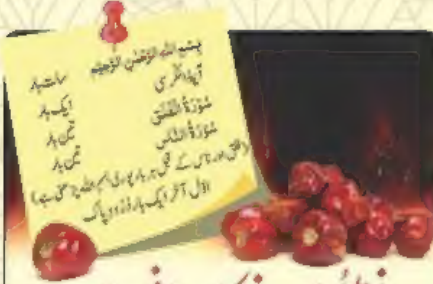 بِسْمِ اللهِ الرَّحْمٰنِ الرَّحِيْمِ سات بار
آیۃ الکرسی ایک بار
سُوْرَۃُ الْفَلَق تین بار
سُوْرَۃُ النَّاس تین بار
(فلق اور ناس کے قبل ہر بار پوری بسم اللہ پڑھنی ہے)
اوّل آخر ایک بار دُرُود پاک